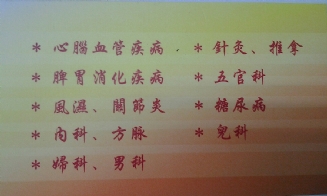 * 心腦血管疾病 . * 針灸、推拿
* 脾胃消化疾病 * 五官科
* 風濕、關節炎 * 糖尿病
* 內科、方脉 * 兒科
* 婦科、男科